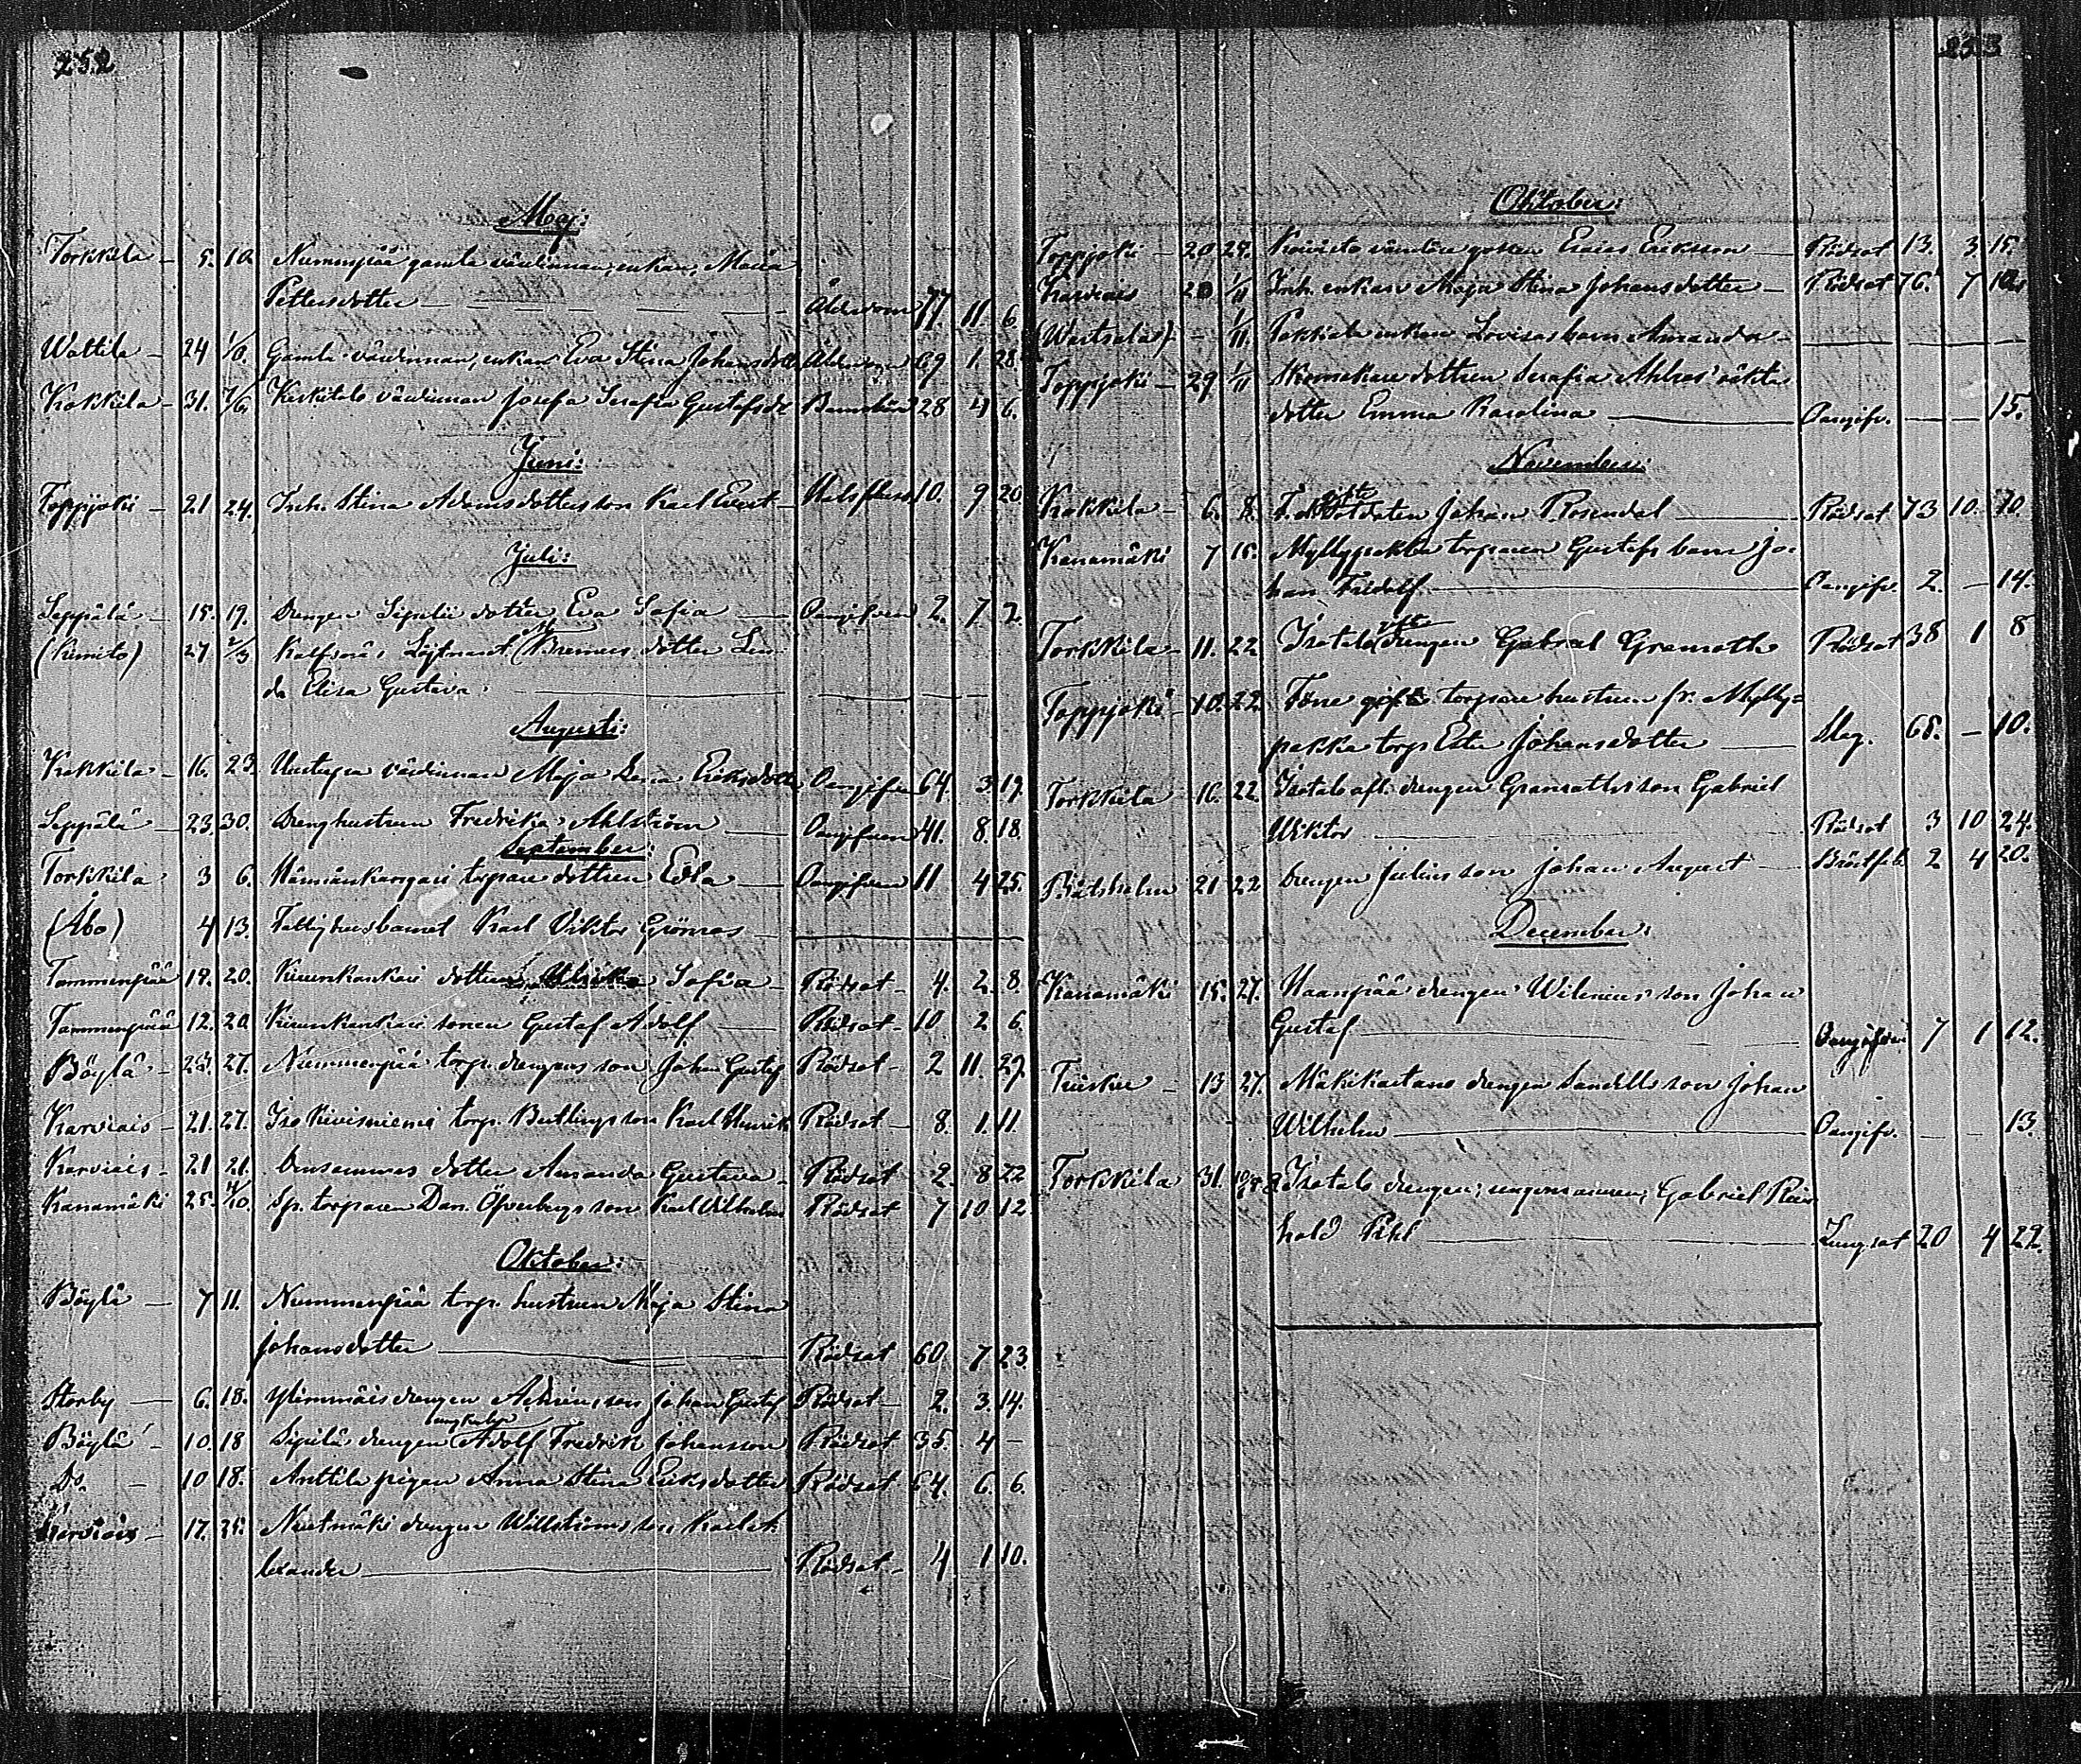 252
Maj:
Torkkila – 5. 10. Nummenpää gamla värdinnan, enkan, Maria
Pettersdotter – Ålderdom 77. 11 6.
Wattila – 24 1/6. Gamla värdinnan, enkan Eva Stina Johansdott. Ålderdom 69 1. 28.
Kokkila – 31. 7/6. Keskitalo värdinnan Josefa Serafia Gustafsdr Barnsbörd 28 4 6.
Juni:
Toppjoki – 21 24. Inh. Stina Adamsdotters son Karl Evert – Halsfluss 10. 9 20
Juli:
Seppälä – 15. 19. Drengen dotter Eva Sofia – Oangifven 2. 7 2
(Kimito) 27 Kalfsnäs Löjtnant Bremers dotter Lin-
da Elisa Gustava.
Augusti:
Kokkila – 16. 23. värdinnan Maja Lena Eriksdotter Oangifven 64. 3 19.
Seppälä – 23. 30. Drenghustrun Fredrika Ahlström – Oangifven 41. 8. 18.
September:
Torkkila 3 6. torpare dottren Edla – Oangifven 11 4 25.
(Åbo) 4 13. Fattighusbarnet Karl Viktor Grönroos
Tammenpää 19. 20. dottren Ulrika Sofia – Rödsot – 4. 2. 8.
Tammenpää 12. 20. sonen Gustaf Adolf – Rödsot – 10 2 6.
Böylä – 23. 27. Nummenpää torp. drengens son Johan Gustaf Rödsot – 2 11. 27.
Karviais – 21. 27. Iso Kivisniemi torp. son Karl Henrik Rödsot – 8. 1. 11
Karviais – 21 21. Densammas dotter Amanda Gustava – Rödsot – 2. 8 22
Kanamäki 25. 4/10. Sp. torparen Dan. Öfverbergs son Karl Vilhelm Rödsot 7 10 12
Oktober:
Böylä – 7 11. Nummenpää torp. hustrun Maja Stina
Johansdotter – Rödsot 60. 7 23.
Storby – 6. 18. Ylimmäis drengen son Johan Gustaf Rödsot – 2. 3. 14.
Böylä – 10. 18 Sipilä drengen ungkarlen Adolf Fredrik Johansson Rödsot 35. 4 –
Do. – 10 18. Anttila pigan Anna Stina Eriksdotter Rödsot 64. 6. 6.
Karviais – 17. 25. drengen Willströms son Karl A-
lexander – Rödsot – 4 1 10.
253
Oktober:
Toppjoki – 20 29. Koivisto gossen Eriksson – Rödsot 13. 3 15.
Karviais 20 1/11 Inh. enkan Maja Stina Johansdotter – Rödsot 76. 7 10.
(Wartsala) – 1/11. enkan Lovisas barn Amanda –
Toppjoki – 29 1/11 dottren Serafia Ahlros' oäkta
dotter Emma Karolina – Oangifv. – – 15.
November:
Kokkila – 6. 8. F.d. gifte Soldaten Johan Rosendal – Rödsot 73 10. 20
Kanamäki 7 15. Myllypakka torparen Gustafs barn Jo-
han Fridolf – Oangifv. 2. – 14.
Torkkila – 11. 22 Isotalo gifte drengen Gabriel Granroth Rödsot 38 1 8
Toppjoki – 10. 22. Förre gifte torpare hustrun fr. Mylly-
pakka torp Ester Johansdotter – Mag. 68. – 10.
Torkkila 16. 22. Isotalo afl. drengen Granroths son Gabriel
Wiktor – Rödsot 3 10 24.
Båtsholm 21 22 Drengen Julius son Johan August – Bröstfeb. 2 4 20.
December:
Kanamäki 15. 27. Haanpää drengen Wilenius son Johan
Gustaf – Oangifven 7 1 12.
Tuisku – 13 27. Mäkikartano drengen Sandells son Johan
Wilhelm – Oangifv. – – 13.
Torkkila 31. Isotalo drengen, ungmannen, Gabriel Rein-
hold Pihl – Lungsot 20 4 22.